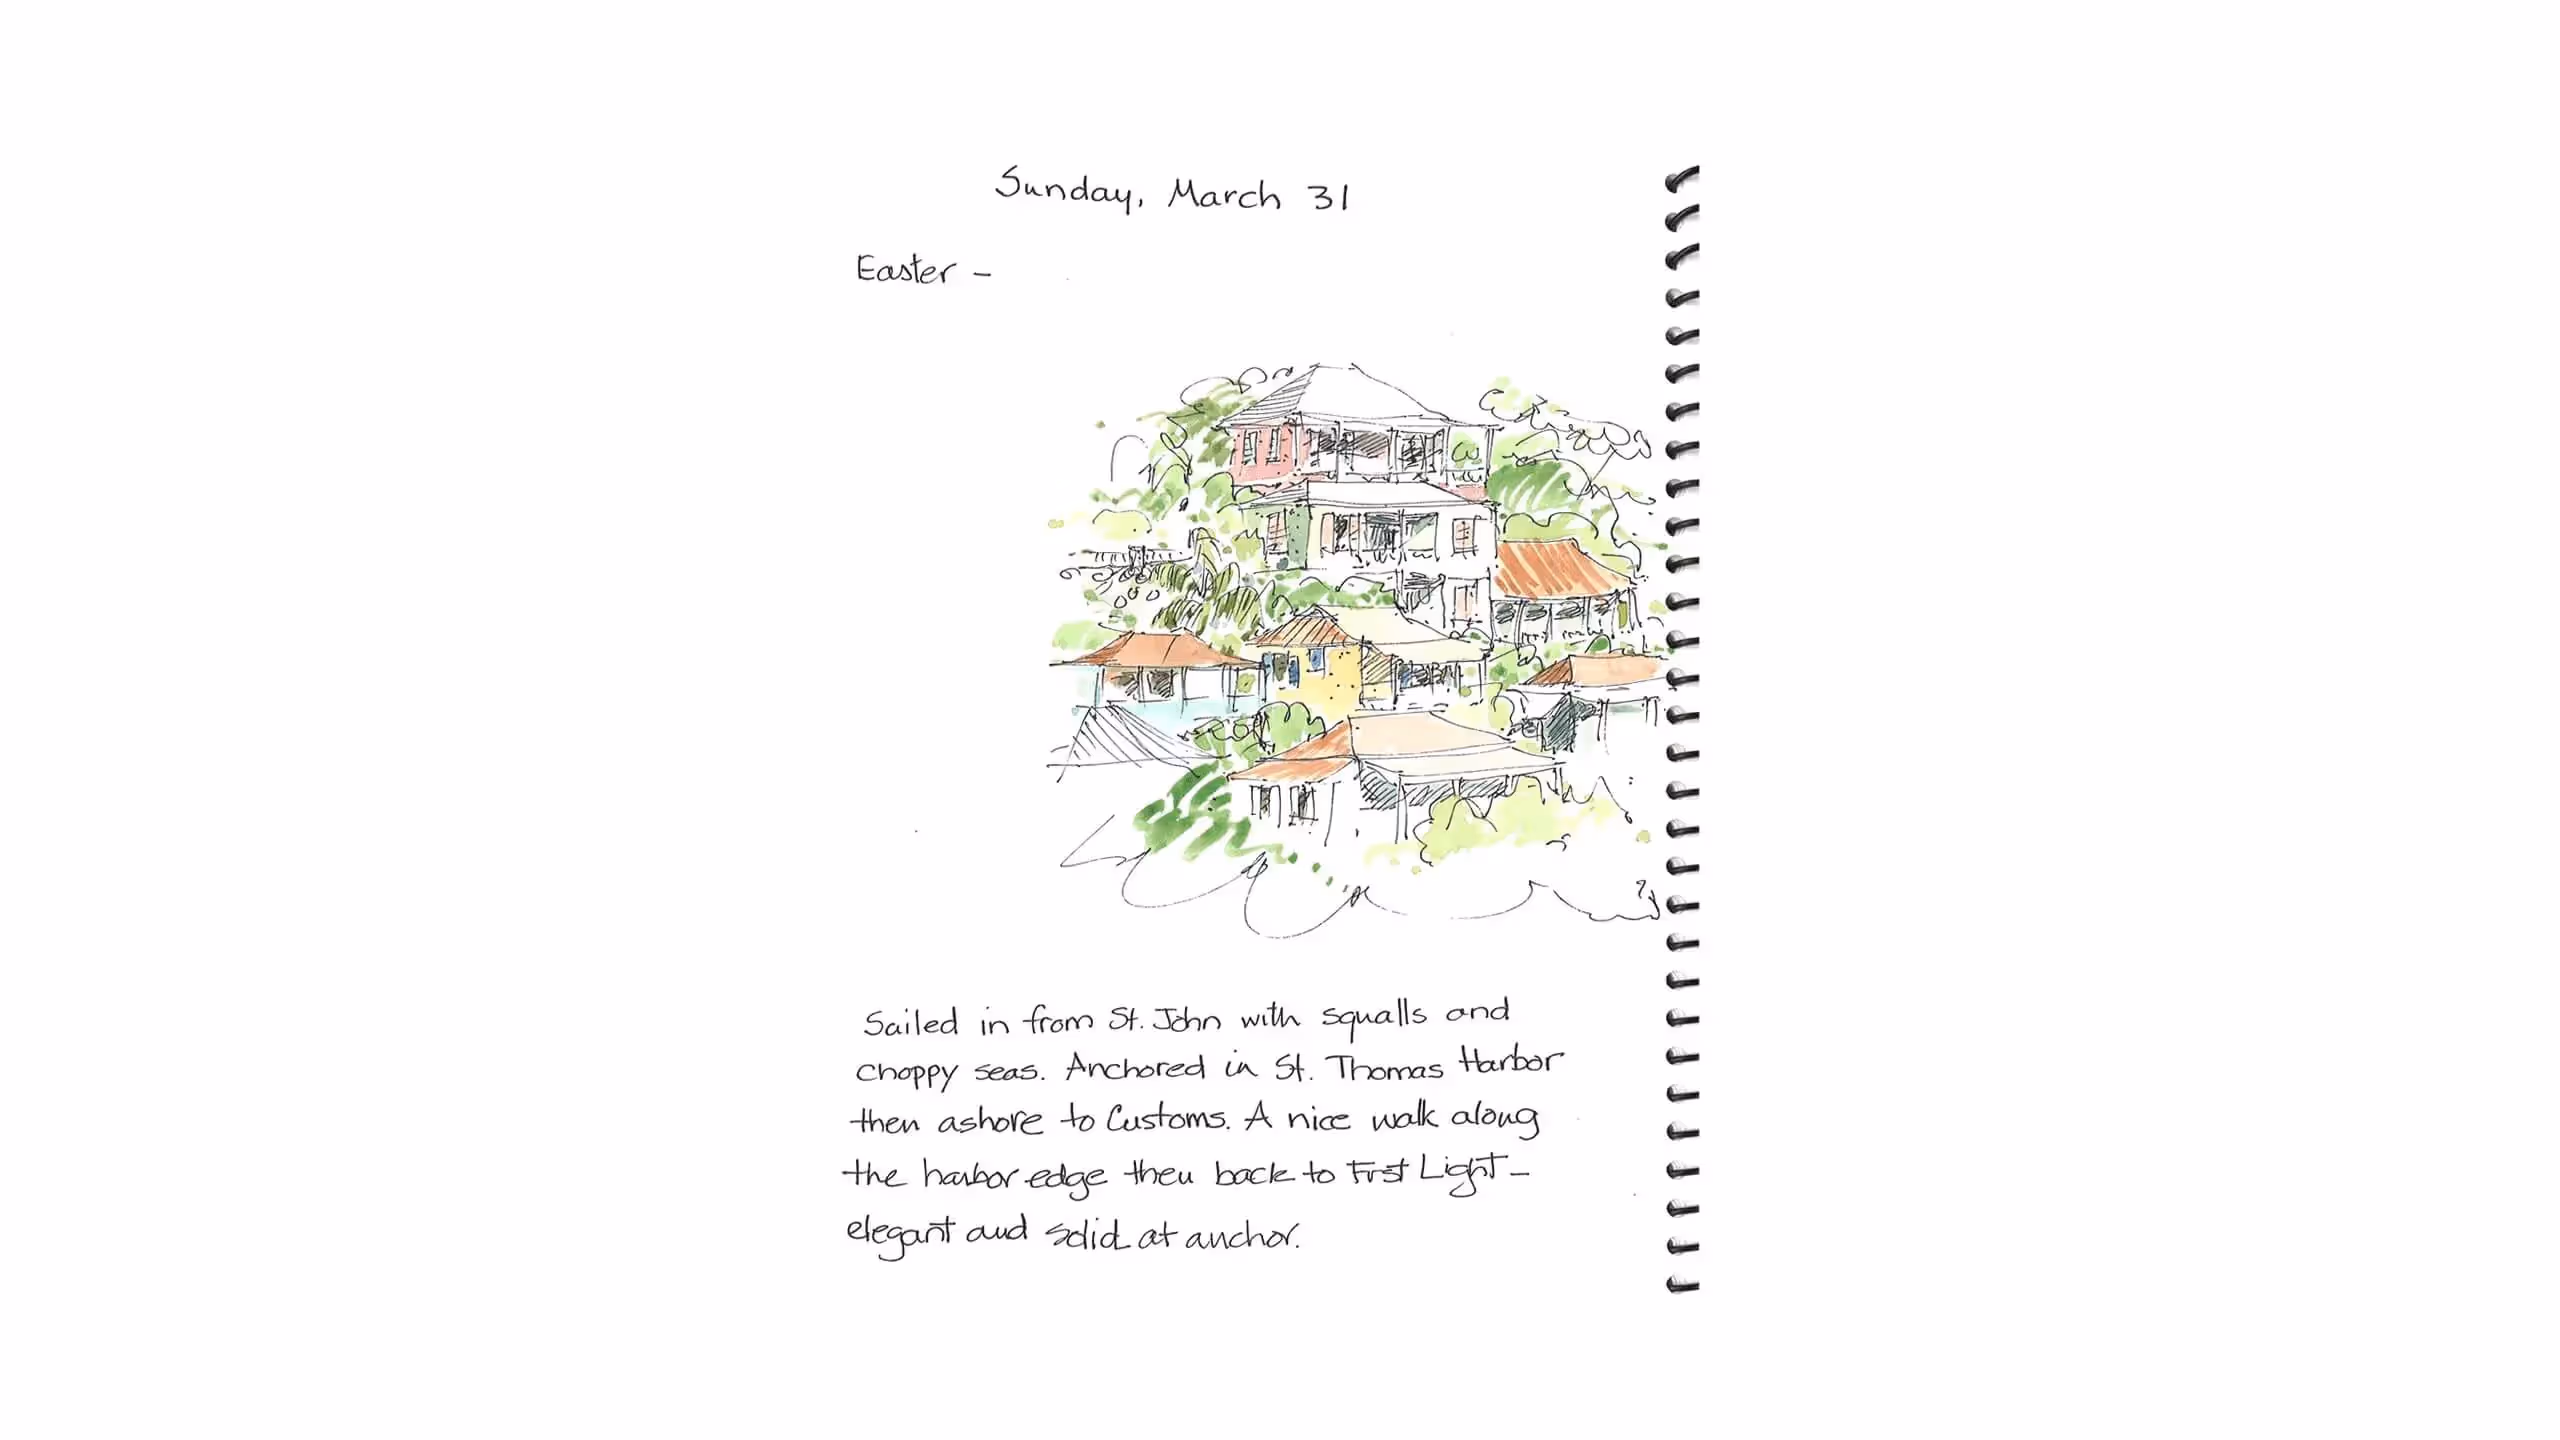 Sunday, March 31
Easter -
Sailed in from St. John with squalls and
choppy seas. Anchored in St. Thomas Harbor
then ashore to Customs. A nice walk along
the harbor edge then back to First Light -
elegant and solid at anchor.